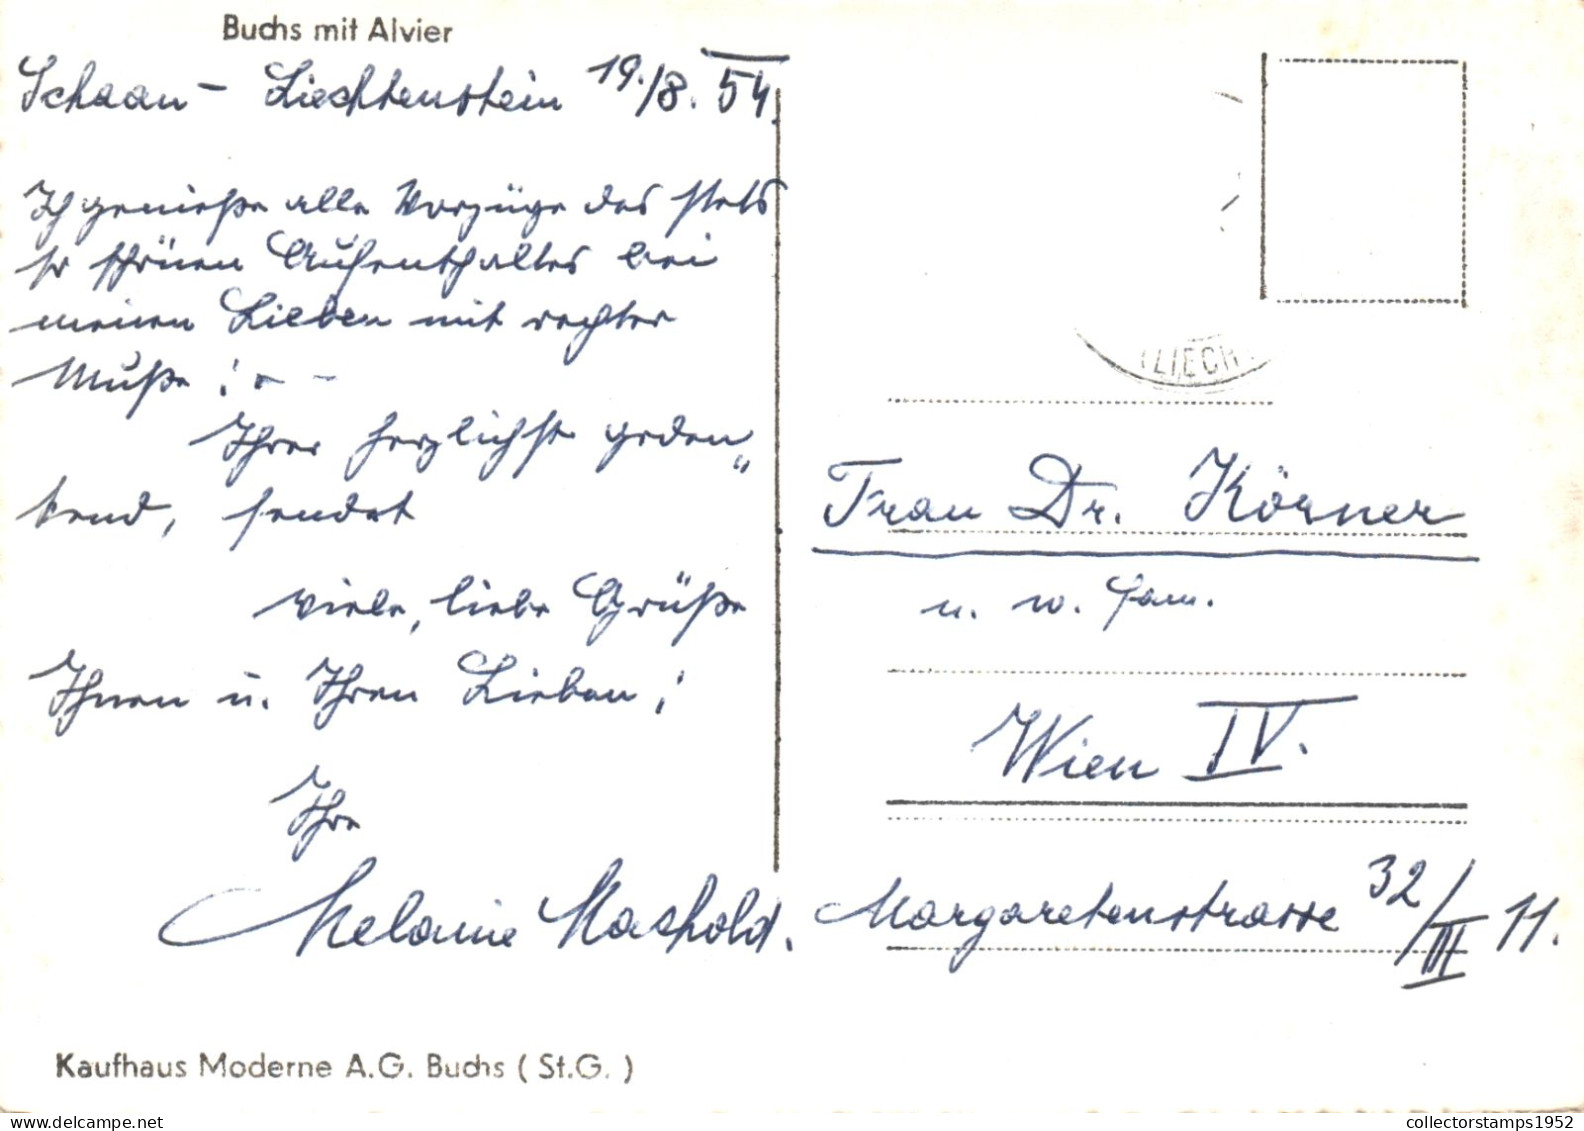 Buchs mit Alvier
Schaan - Liechtenstein 19./8. 54.
Ich genieße alle Vorzüge des stets
so schönen Aufenthaltes bei
meinen Lieben mit rechter
Muße! - -
Ihrer herzlichst geden„
kend, sendet
viele, liebe Grüße
Ihnen u. Ihren Lieben!
Ihre
Melanie Mashold.
(LIECH
Frau Dr. Körner
u. w. Fam.
Wien IV.
Margaretenstrasse 32/III 11.
Kaufhaus Moderne A.G. Buchs ( St.G. )
collectorstamps1952